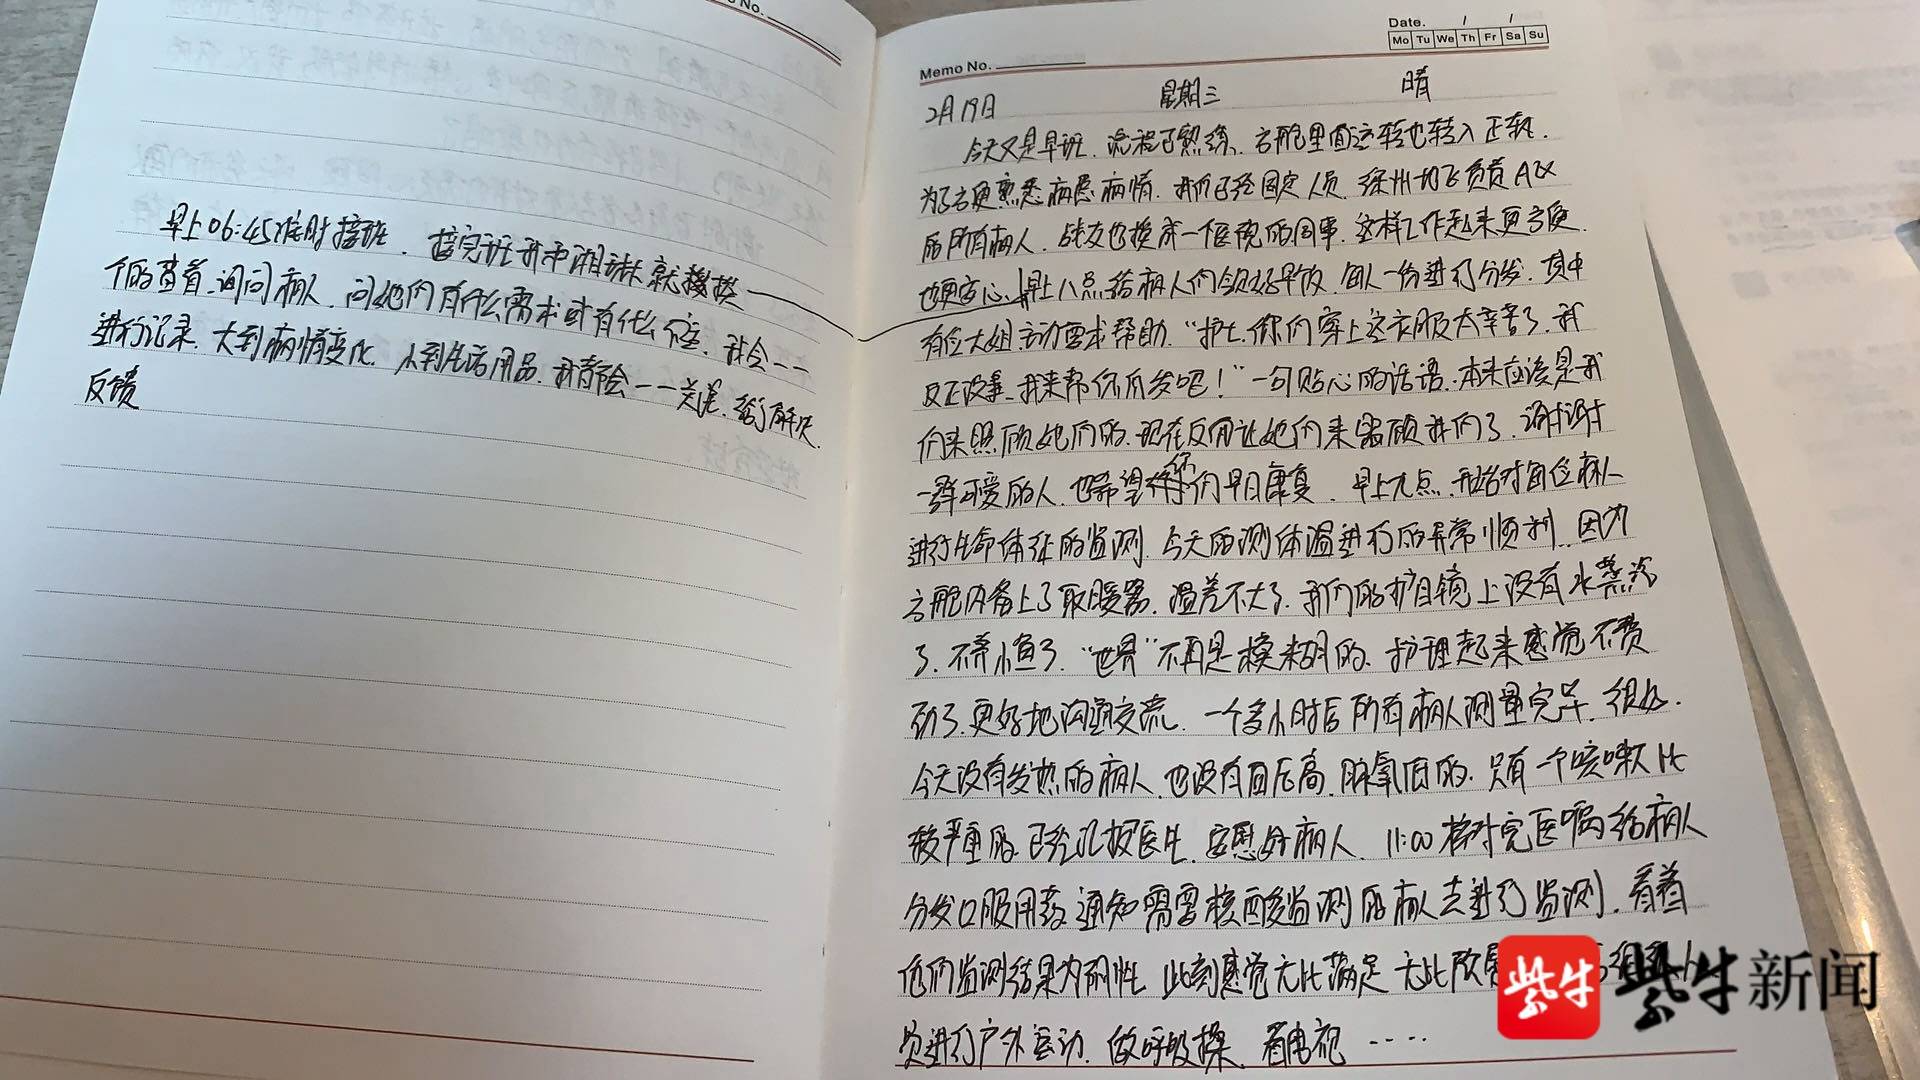 早上06:45准时接班，接完班我和湘琳就挨
个的查着、询问病人，问她们有什么需求或有什么不适，我会一一
进行记录，大到病情变化，小到生活用品，我都会一一关注，给予解决，
反馈
Memo No.
Date. / /
Mo Tu We Th Fr Sa Su
2月19日 星期三 晴
今天又是早班，流程已熟练，方舱里面运转也转入正轨，
为了方便熟悉病患病情，我们已经固定人员，徐州 负责A区
的所有病人，战友也换成一个医院的同事，这样工作起来更方便，
也更安心，早上八点给病人们领好早饭，每人一份进行分发，其中
有位大姐主动要求帮助，“护士，你们穿上这衣服太辛苦了，我
反正没事，我来帮你们发吧！”一句贴心的话语，本来应该是我
们来照顾她们的，现在反而让她们来照顾我们了，谢谢
一群可爱的人，也希望你们早日康复，早上九点，开始对每位病人
进行生命体征的监测，今天的测体温进行的异常顺利，因为
方舱内备上了取暖器，温差不大了，我们的护目镜上没有水蒸汽
了，不养小鱼了，“世界”不再是模糊的，护理起来感觉不费
劲了，更好地沟通交流，一个多小时后所有病人测量完毕，很好，
今天没有发热的病人，也没有血压高，脉氧低的，只有一个咳嗽比
较严重的，已经汇报医生，安慰好病人，11:00核对完医嘱给病人
分发口服用药，通知需要核酸监测的病人去进行监测，看着
他们监测结果为阴性，此刻感觉无比满足，无比欣
员进行户外运动，做呼吸操，看电视……
紫牛
紫牛新闻